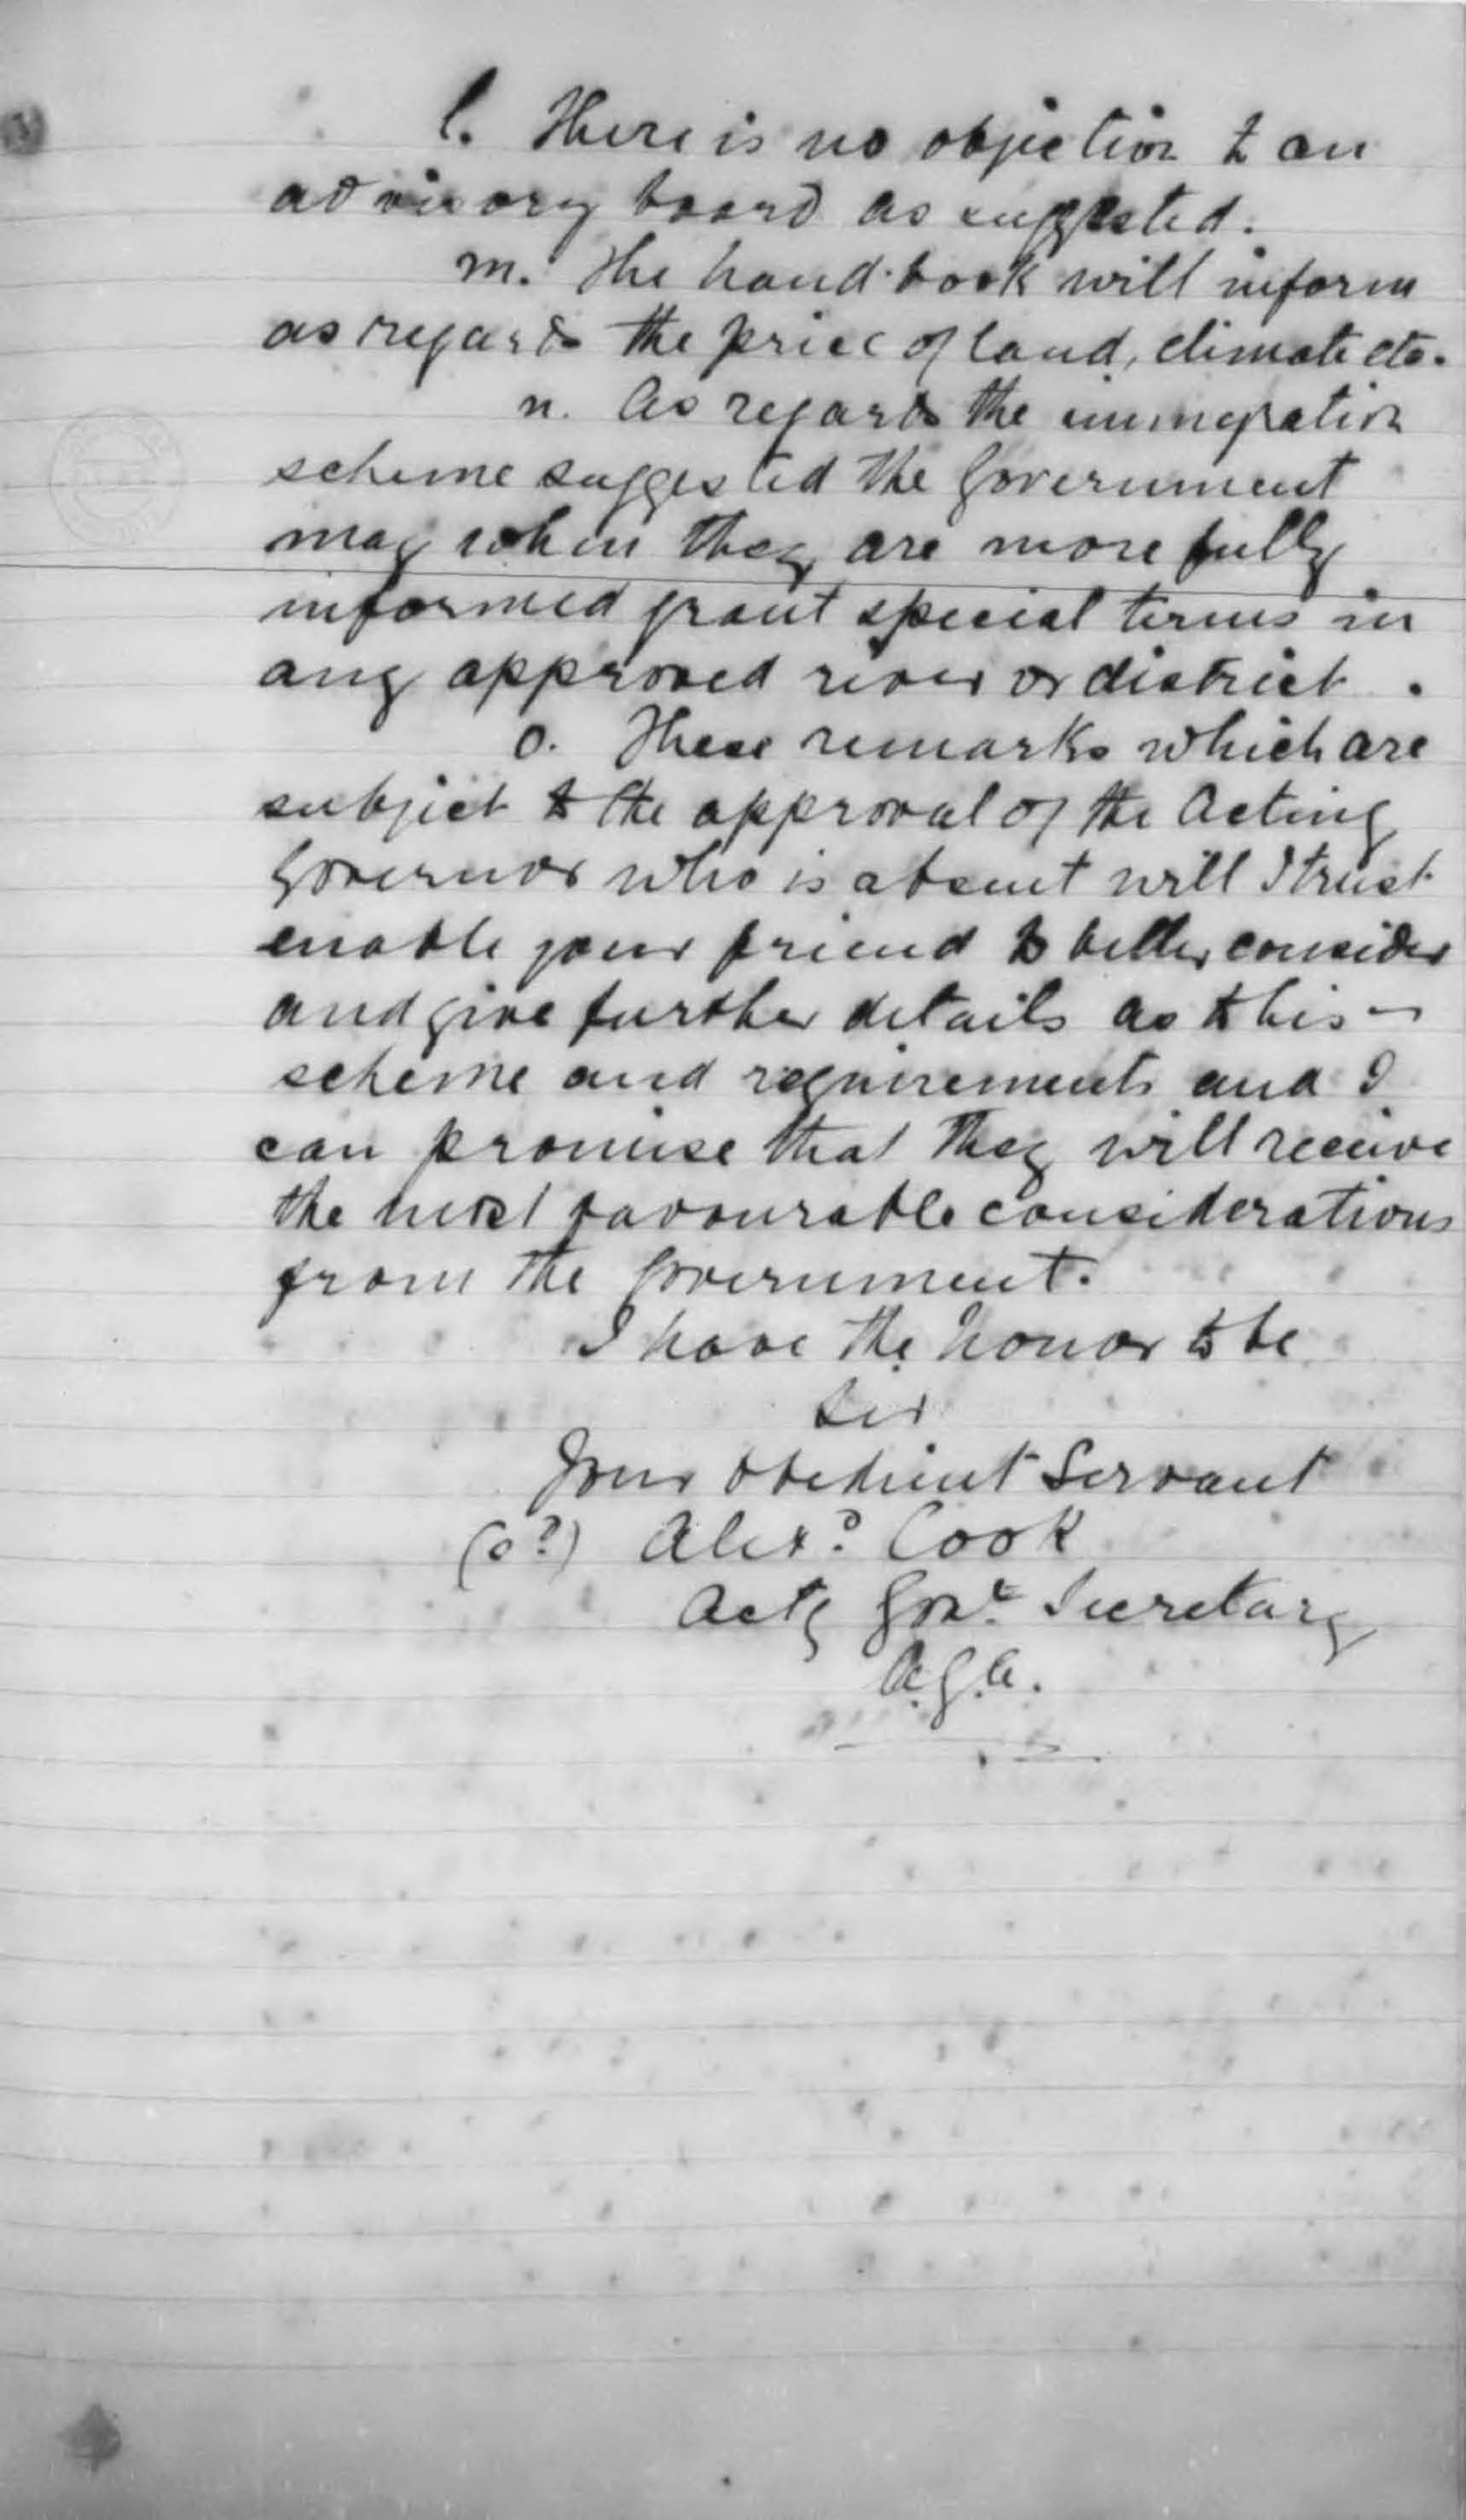 l. There is no objection to an
advisory board as suggested.
m. The hand-book will inform
as regards the price of land, climate etc.
n. As regards the immigration
scheme suggested the Government
may when they are more fully
informed grant special terms in
any approved river or district.
o. These remarks which are
subject to the approval of the Acting
Governor who is absent will I trust
enable your friend to better consider
and give further details as to his
scheme and requirements and I
can promise that they will receive
the most favourable considerations
from the Government.
I have the honor to be
Sir
Your obedient Servant
Alexr. Cook
Actg Govt Secretary